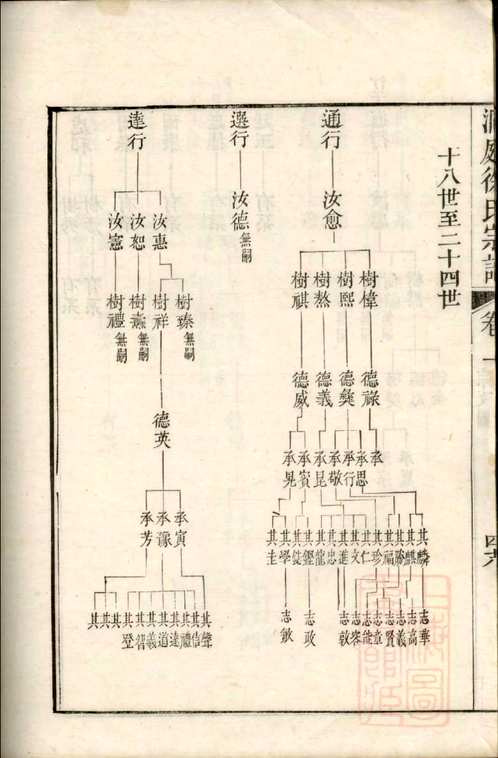 十八世至二十四世
通行
汝愈
樹偉
樹熙
樹熬
樹祺
德祿
德彝
德義
德威
承
承思
承行
承敬
承昆
承賓
承晃
其麟
其麒
其勝
其福
其珍
其仁
其文
其進
其忠
其龍
其鏗
其學
其圭
志華
志高
志義
志賢
志章
志能
志容
志敦
志政
志敏
選行
汝德 無嗣
達行
汝惠
汝恕
汝憲
樹臻 無嗣
樹祥
樹燾 無嗣
樹禮 無嗣
德英
承寅
承濠
承芳
其聲
其信
其禮
其達
其道
其義
其智
其登
其
其
其
四六